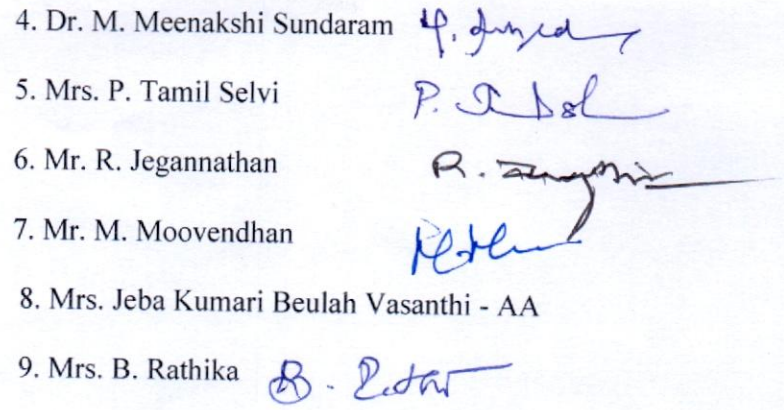 4. Dr. M. Meenakshi Sundaram
5. Mrs. P. Tamil Selvi P.
6. Mr. R. Jegannathan R.
7. Mr. M. Moovendhan
8. Mrs. Jeba Kumari Beulah Vasanthi - AA
9. Mrs. B. Rathika B.